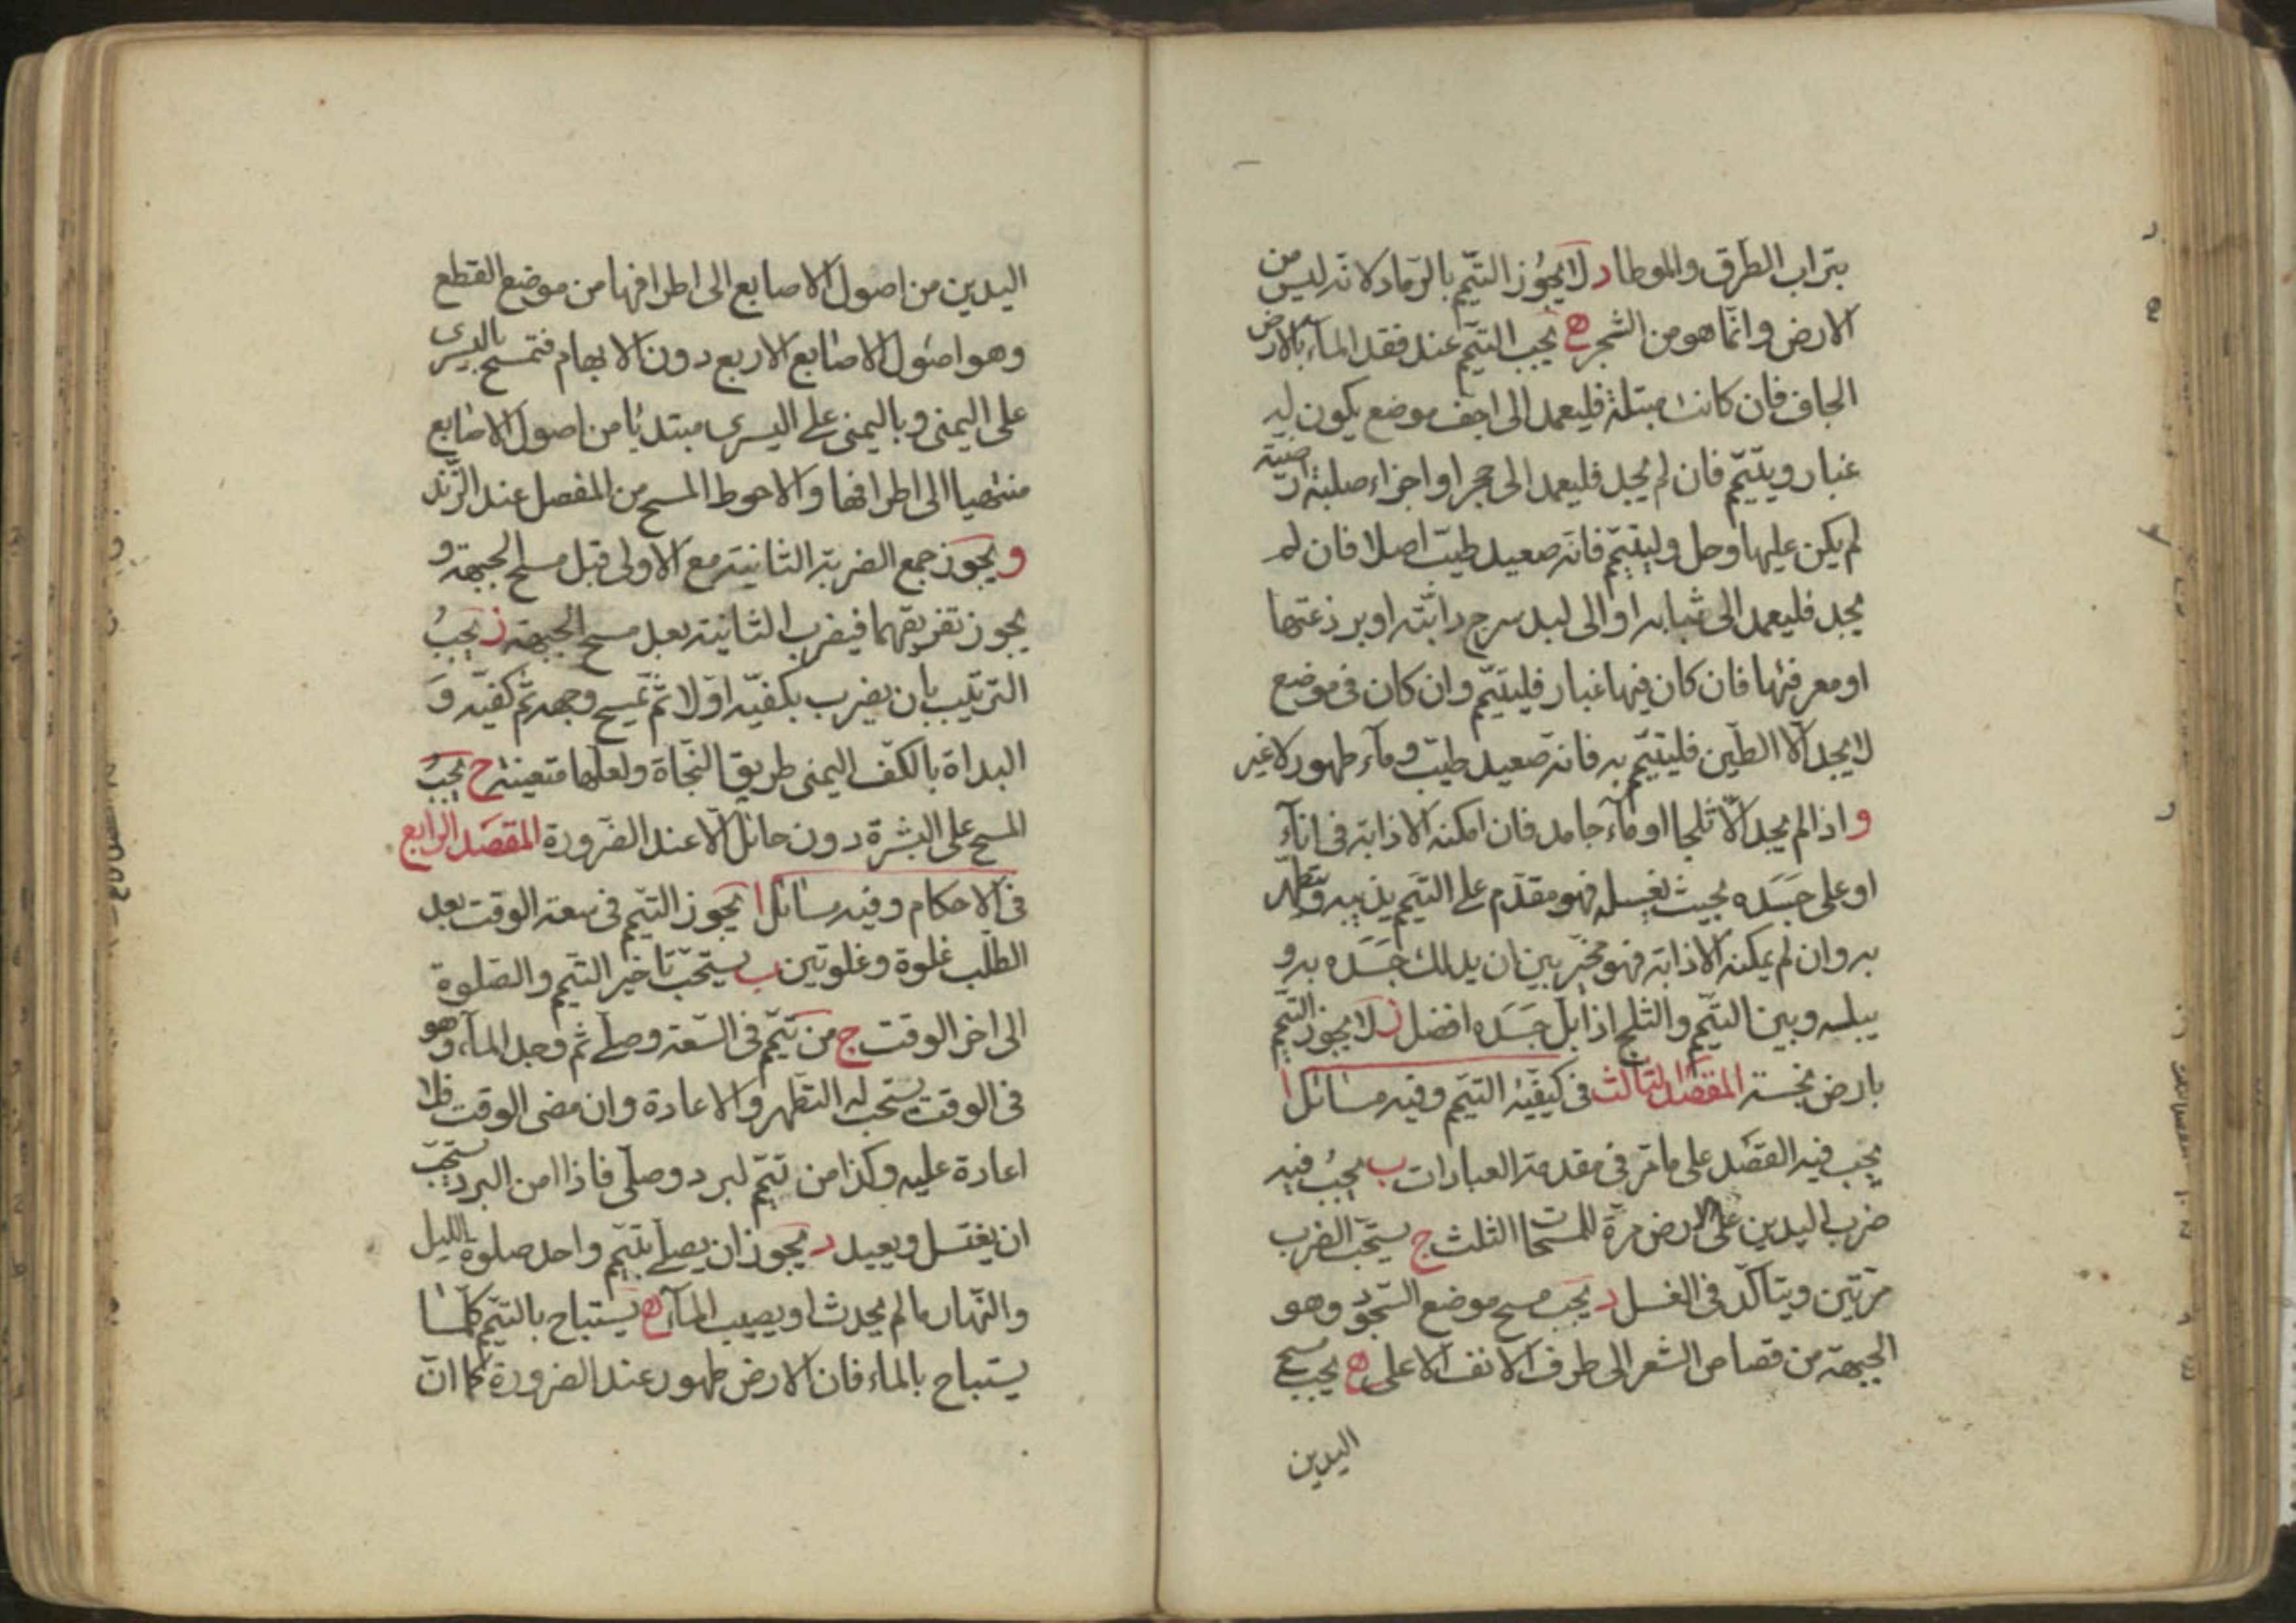 بتراب الطرق والموطا د لا يجوز التيمّم بالرّماد لانّه ليس من
الارض وانّما هو من الشجر ه يجب التيمّم عند فقد المآء بالارض
الجاف فان كانت مبتلة فليعمد الى اجف موضع يكون له
غبار ويتيمّم فان لم يجد فليعمد الى حجر او اجزاء صلبة
لم يكن عليها وحل وليتيمّم فانه صعيد طيّب اصلا فان لم
يجد فليعمد الى ثيابه او الى لبد سرج دابّته او برذعتها
او معرفتها فان كان فيها غبار فليتيمّم وان كان فى موضع
لا يجد الّا الطّين فليتيمّم به فانه صعيد طيّب ومآء طهور لا غير
و اذا لم يجد الّا ثلجا او مآء جامد فان امكنه الاذابة فى انآء
او على جسده بحيث يغسله فهو مقدّم على التيمّم يذيبه ويتطهّر
به وان لم يمكنه الاذابة فهو مخيّر بين ان يدلك جسده به و
يبلّه وبين التيمّم والثلج اذا بلّ جسده افضل ز لا يجوز التيمّم
بارض نجسة المقصد الثالث فى كيفيّة التيمّم وفيه مسائل ا
يجب فيه القصد على ما مرّ فى مقدمة العبادات ب يجب فيه
ضرب اليدين على الارض مرّة للمسحات الثلث ج يستحبّ الضرب
مرّتين ويتاكّد فى الغسل د يجب مسح موضع السّجود وهو
الجبهة من قصاص الشعر الى طرف الانف الاعلى ه يجب مسح
اليدين
اليدين من اصول الاصابع الى اطرافها من موضع القطع
وهو اصول الاصابع الاربع دون الابهام فتمسح باليسرى
على اليمنى وباليمنى على اليسرى مبتدئا من اصول الاصابع
منتهيا الى اطرافها والاحوط المسح من المفصل عند الزّند
و يجوز جمع الضربة الثانية مع الاولى قبل مسح الجبهة و
يجوز تفريقهما فيضرب الثانية بعد مسح الجبهة ز يجب
الترتيب بان يضرب بكفيّه اوّلا ثمّ يمسح وجهه ثمّ كفيّه و
البداة بالكفّ اليمنى طريق النّجاة ولعلها متعينة ح يجب
المسح على البشرة دون حائل الّا عند الضّرورة المقصد الرابع
فى الاحكام وفيه مسائل ا يجوز التيمّم فى سعة الوقت بعد
الطّلب غلوة وغلوتين ب يستحبّ تاخير التيمّم والصّلوة
الى اخر الوقت ج من تيمّم فى السّعة وصلّى ثم وجد المآء وهو
فى الوقت يستحب له التطهر والاعادة وان مضى الوقت فلا
اعادة عليه وكذا من تيمّم لبرد وصلّى فاذا امن البرد يستحبّ
ان يغتسل ويعيد د يجوز ان يصلّى بتيمّم واحد صلوة الليل
والنّهار ما لم يحدث او يصيب المآء ه يستباح بالتيمّم كلّما
يستباح بالماء فان الارض طهور عند الضرورة كما انّ